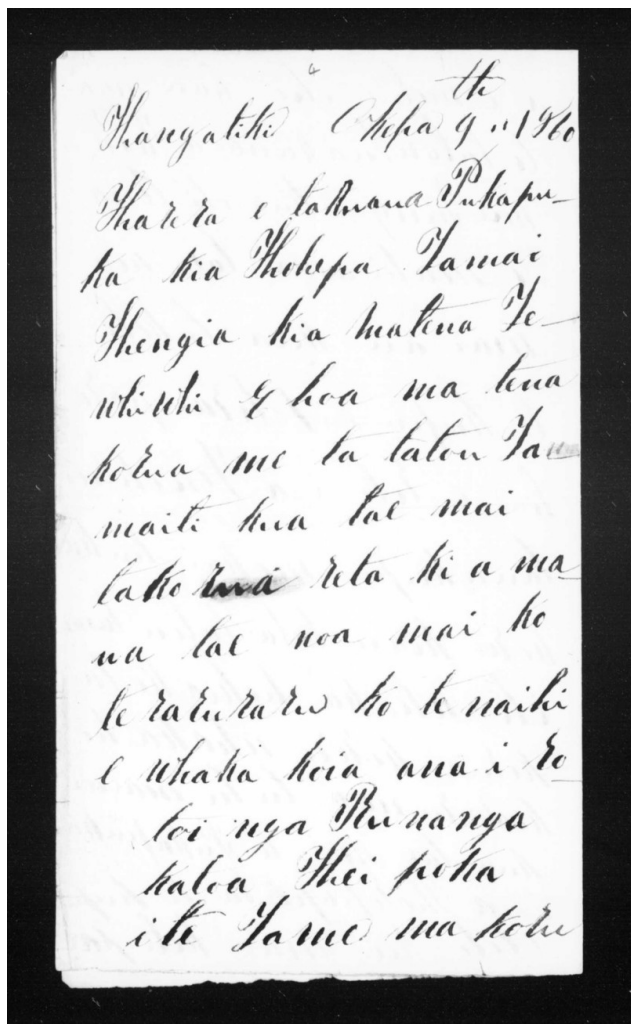 Whangatiki Okepa 9 th 1860
Wharera e taku ana Pukapu-
ka kia Wholepa Tamai
Whengia kia Matena Te-
whiwhi E hoa ma tena
korua me ta tatou Ta
maiti kua tae mai
takorua reta ki a ma-
na tae noa mai ko
te raruraru ko te naihi
e whaka koia ana i ro-
toi nga Runanga
katoa Whei poka
i te Tame ma koru